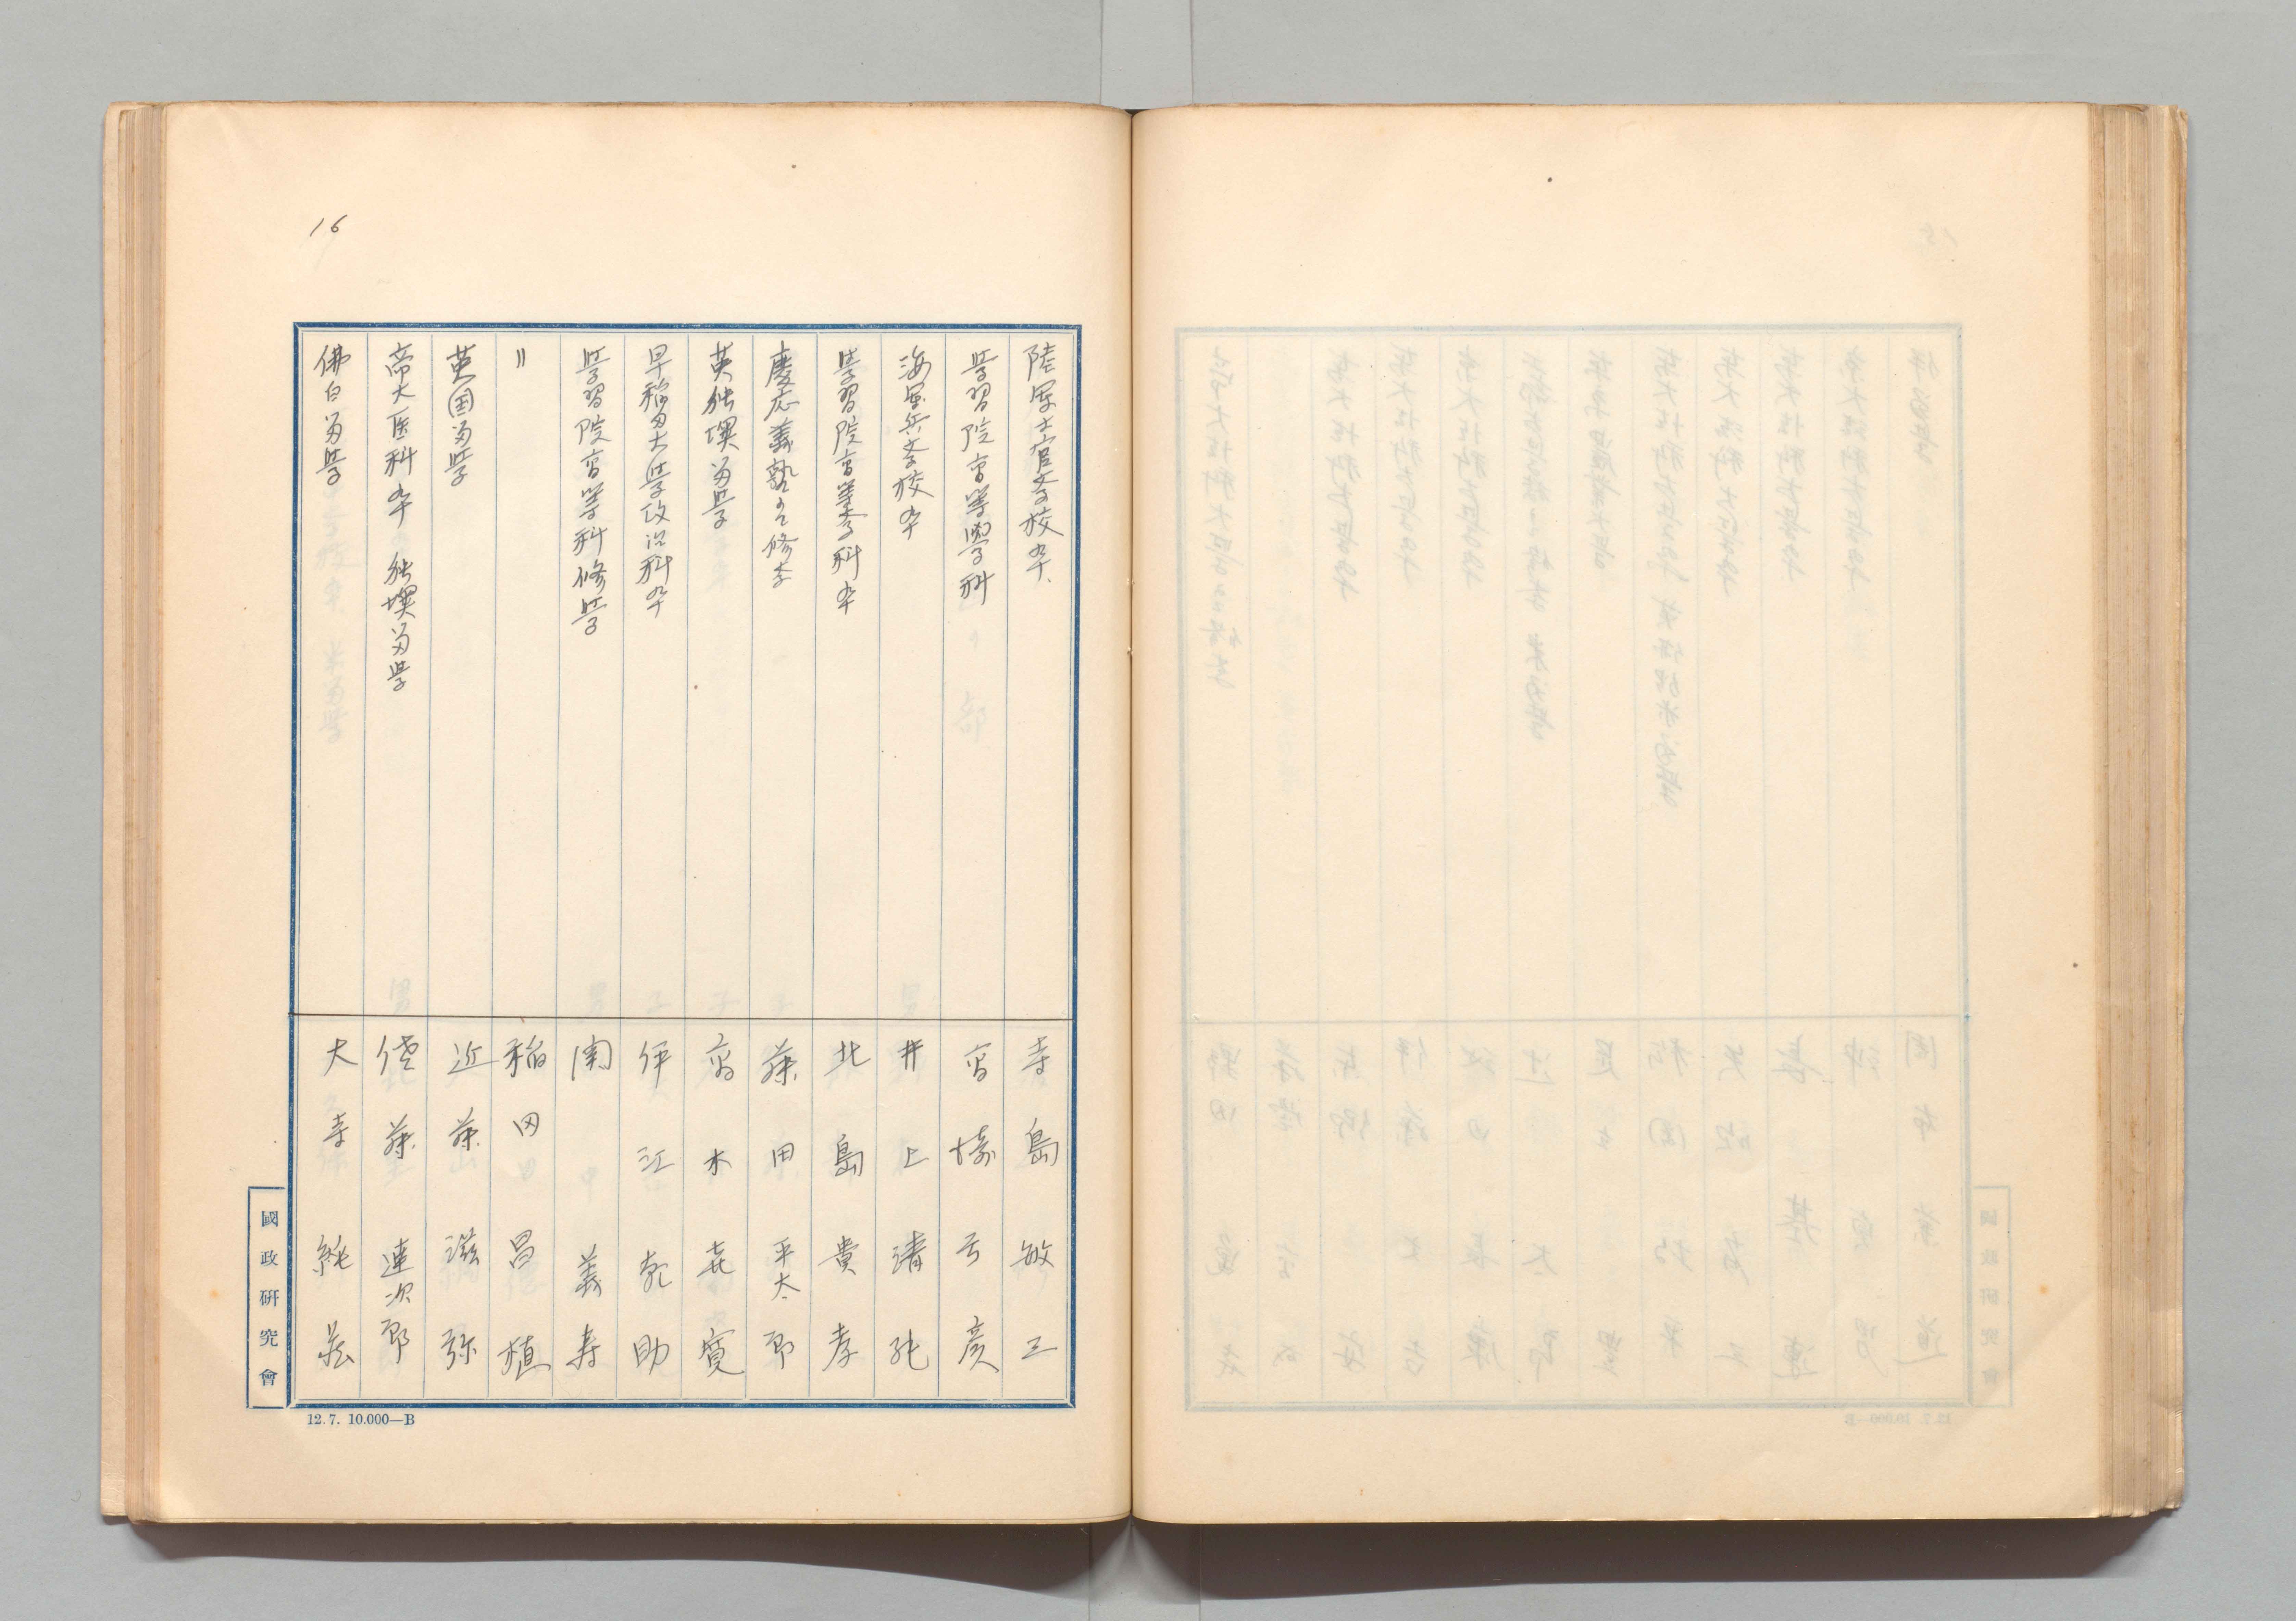 16
陸軍士官学校卒、 寺島敏三
学習院高等學科 高崎弓彦
海軍兵学校卒 井上清純
学習院高等学科卒 北島貴孝
慶応義塾ニ修学 藤田平太郎
英独墺留学 高木喜寛
早稲田大学政治科卒 伊江朝助
学習院高等科修学 関義寿
〃 稲田昌植
英国留学 近藤滋弥
帝大医科卒 独墺留学 佐藤達次郎
佛白留学 大寺純蔵
國政研究會
12.7. 10.000—B